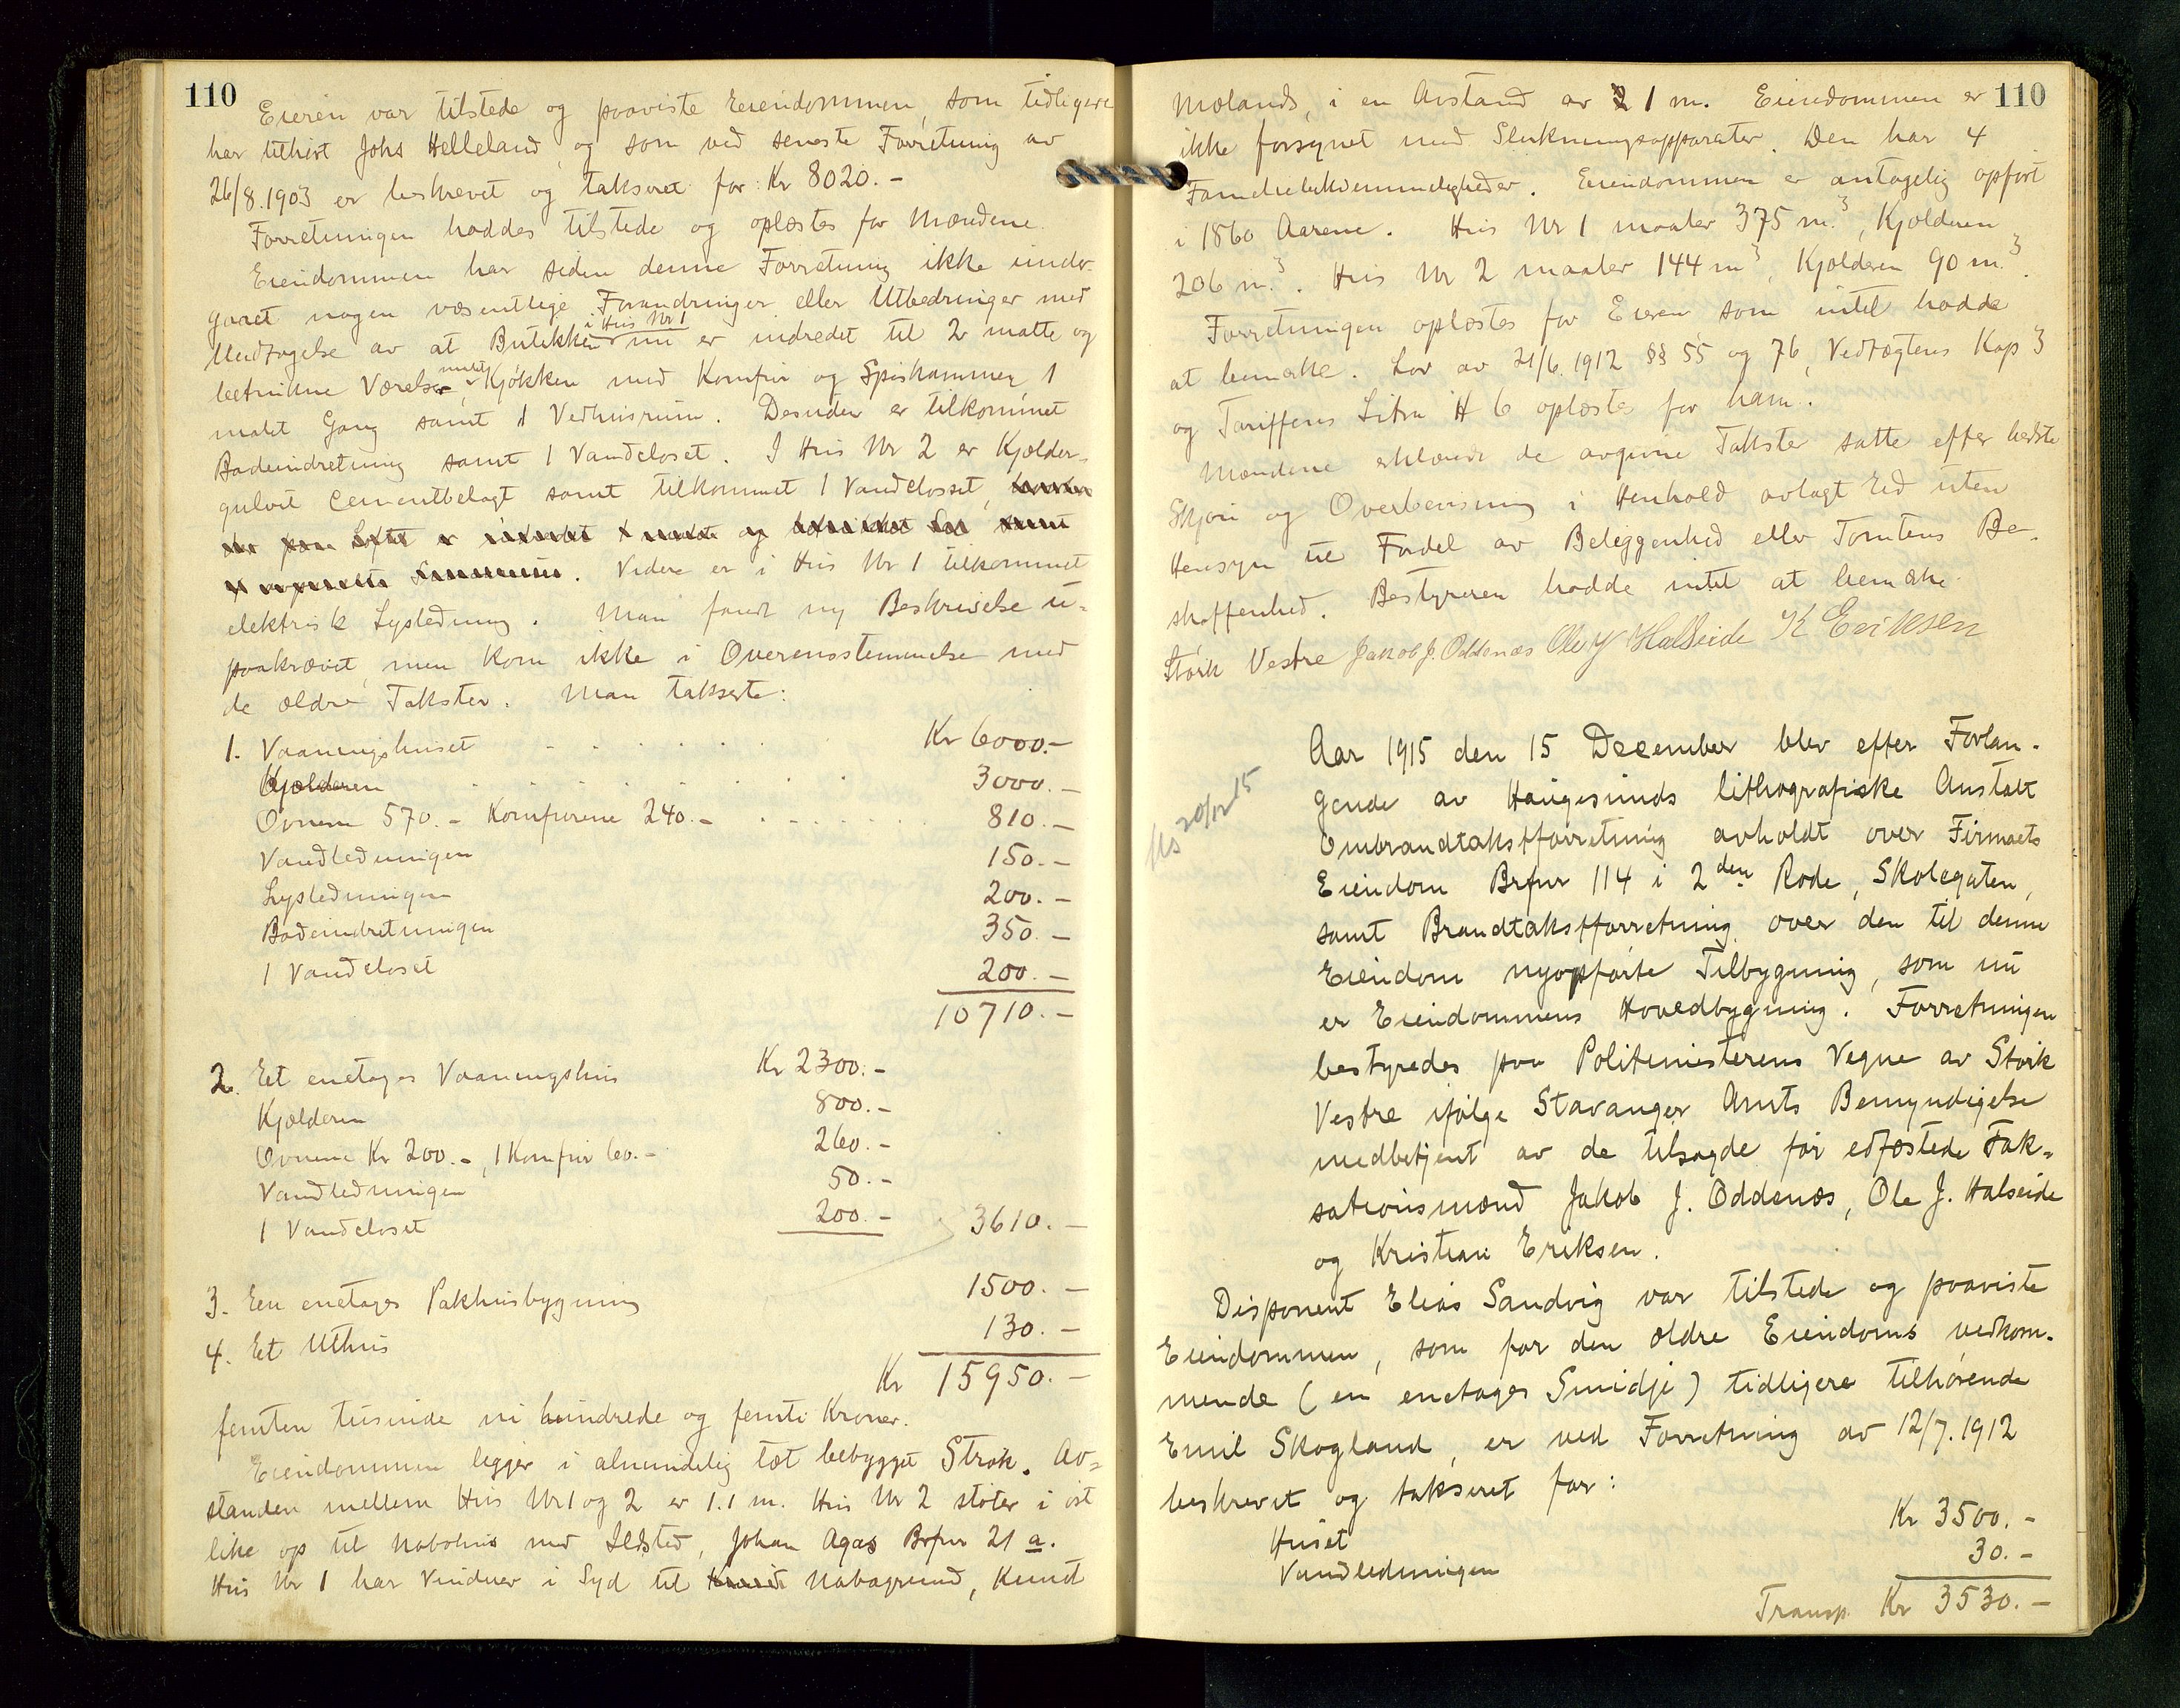 110
Eieren var tilstede og paaviste Eiendommen, som tidligere
har tilhørt Johs Helleland, og som ved seneste Forretning av
26/8.1903 er beskrevet og takseret for Kr 8020.-
Forretningen haddes tilstede og oplæstes for Mændene.
Eiendommen har siden denne Forretning ikke under-
gaaet nogen væsentlige Forandringer eller Utbedringer med
Undtagelse av at Butikken i Hus Nr 1 nu er indredet til 2 malte og
betrukne Værelser, malet Kjøkken med Komfur og Spiskammer, 1
malet Gang samt 1 Vedhusrum. Desuden er tilkommet
Badeindretning samt 1 Vandcloset. I Hus Nr 2 er Kjælder-
gulvet cementbelagt samt tilkommet 1 Vandclosset,
. Videre er i Hus Nr 1 tilkommet
elektrisk Lysledning. Man fandt ny Beskrivelse u-
paakrævet, men kom ikke i Overensstemmelse med
de ældre Takster. Man takserte:
1. Vaaningshuset Kr 6000.-
Kjælderen 3000.-
Ovnene 570.- Komfurene 240.- 810.-
Vandledningen 150.-
Lysledningen 200.-
Badeindretningen 350.-
1 Vandcloset 200.-
10710.-
2. Et enetages Vaaningshus Kr 2300.-
Kjælderen 800.-
Ovnene Kr 200.-, 1 Komfur 60.- 260.-
Vandledningen 50.-
1 Vandcloset 200.- 3610.-
3. Een enetages Pakhusbygning 1500.-
4. Et Uthus 130.-
Kr 15950.-
femten tusinde ni hundrede og femti Kroner.
Eiendommen ligger i almindelig tæt bebygget Strøk. Av-
standen mellem Hus Nr 1 og 2 er 1.1 m. Hus Nr 2 støter i øst
like op til Nabohus med Ildsted, Johan Agas Brfnr 21 a.
Hus Nr 1 har Vinduer i Syd til Nabogrund, Knud
110
Mælands, i en Avstand av 1 m. Eiendommen er
ikke forsynet med Slukningsapparater. Den har 4
Familiebekvemmeligheder. Eiendommen er antagelig opført
i 1860 Aarene. Hus Nr 1 maaler 375 m.³, Kjælderen
206 m.³. Hus Nr 2 maaler 144 m³, Kjælderen 90 m.³.
Forretningen oplæstes for Eieren som intet hadde
at bemærke. Lov av 21/6.1912 §§ 55 og 76, Vedtægtens Kap 3
og Tariffens Litra H 6 oplæstes for ham.
Mændene erklærede de avgivne Takster satte efter bedste
Skjøn og Overbevisning i Henhold avlagt Ed uten
Hensyn til Fordel av Beliggenhed eller Tomtens Be-
skaffenhed. Bestyreren hadde intet at bemærke.
Størk Vestre Jakob J. Oddenæs Ole J Halseide K Eriksen
20/12 15
Aar 1915 den 15 December blev efter Forlan-
gende av Haugesunds lithografiske Anstalt
Ombrandtakstforretning avholdt over Firmaets
Eiendom Brfnr 114 i 2den Rode, Skolegaten,
samt Brandtakstforretning over den til denne
Eiendom nyopførte Tilbygning, som nu
er Eiendommens Hovedbygning. Forretningen
bestyredes paa Politimesterens Vegne av Størk
Vestre ifølge Stavanger Amts Bemyndigelse
medbetjent av de tilsagde før edfæstede Tak-
sationsmænd Jakob J. Oddenæs, Ole J. Halseide
og Kristian Eriksen.
Disponent Elias Sandvig var tilstede og paaviste
Eiendommen, som for den ældre Eiendoms vedkom-
mende (en enetages Smidje) tidligere tilhørende
Emil Skogland, er ved Forretning av 12/7.1912
beskrevet og takseret for:
Huset Kr 3500.-
Vandledningen 30.-
Transp. Kr 3530.-